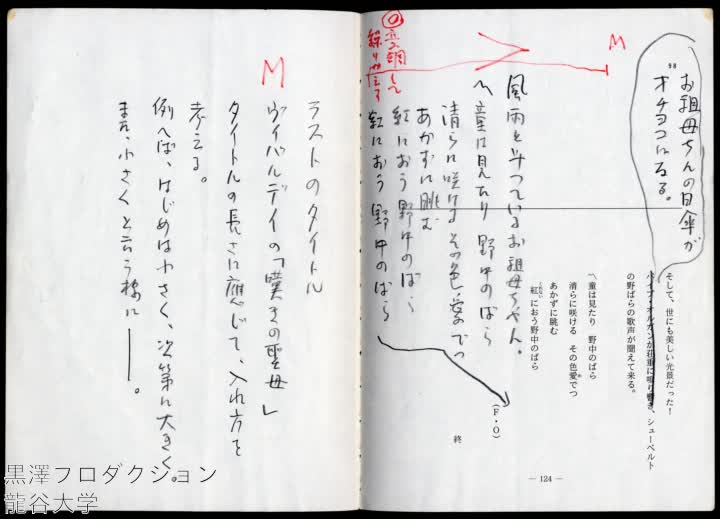 98
お祖母ちゃんの日傘が
オチョコになる。
そして、世にも美しい光景だった!
パイプ・オルガンが荘重に鳴り響き、シューベルト
の野ばらの歌声が聞えて来る。
〽童は見たり 野中のばら
清らに咲ける その色愛でつ
あかずに眺む
紅におう野中のばら
(F・O)
終
— 124 —
M
風雨と斗っているお祖母ちゃん。
〽童は見たり 野中のばら
清らに咲ける その色愛でつ
あかずに眺む
紅におう 野中のばら
紅におう 野中のばら
変調して
繰りかえす
ラストのタイトル
M
ヴィバルディの「嘆きの聖母」
タイトルの長さに応じて、入れ方を
考える。
例へば、はじめは小さく、次第に大きく。
また、小さくと言う様に——。
黒澤プロダクション
龍谷大学